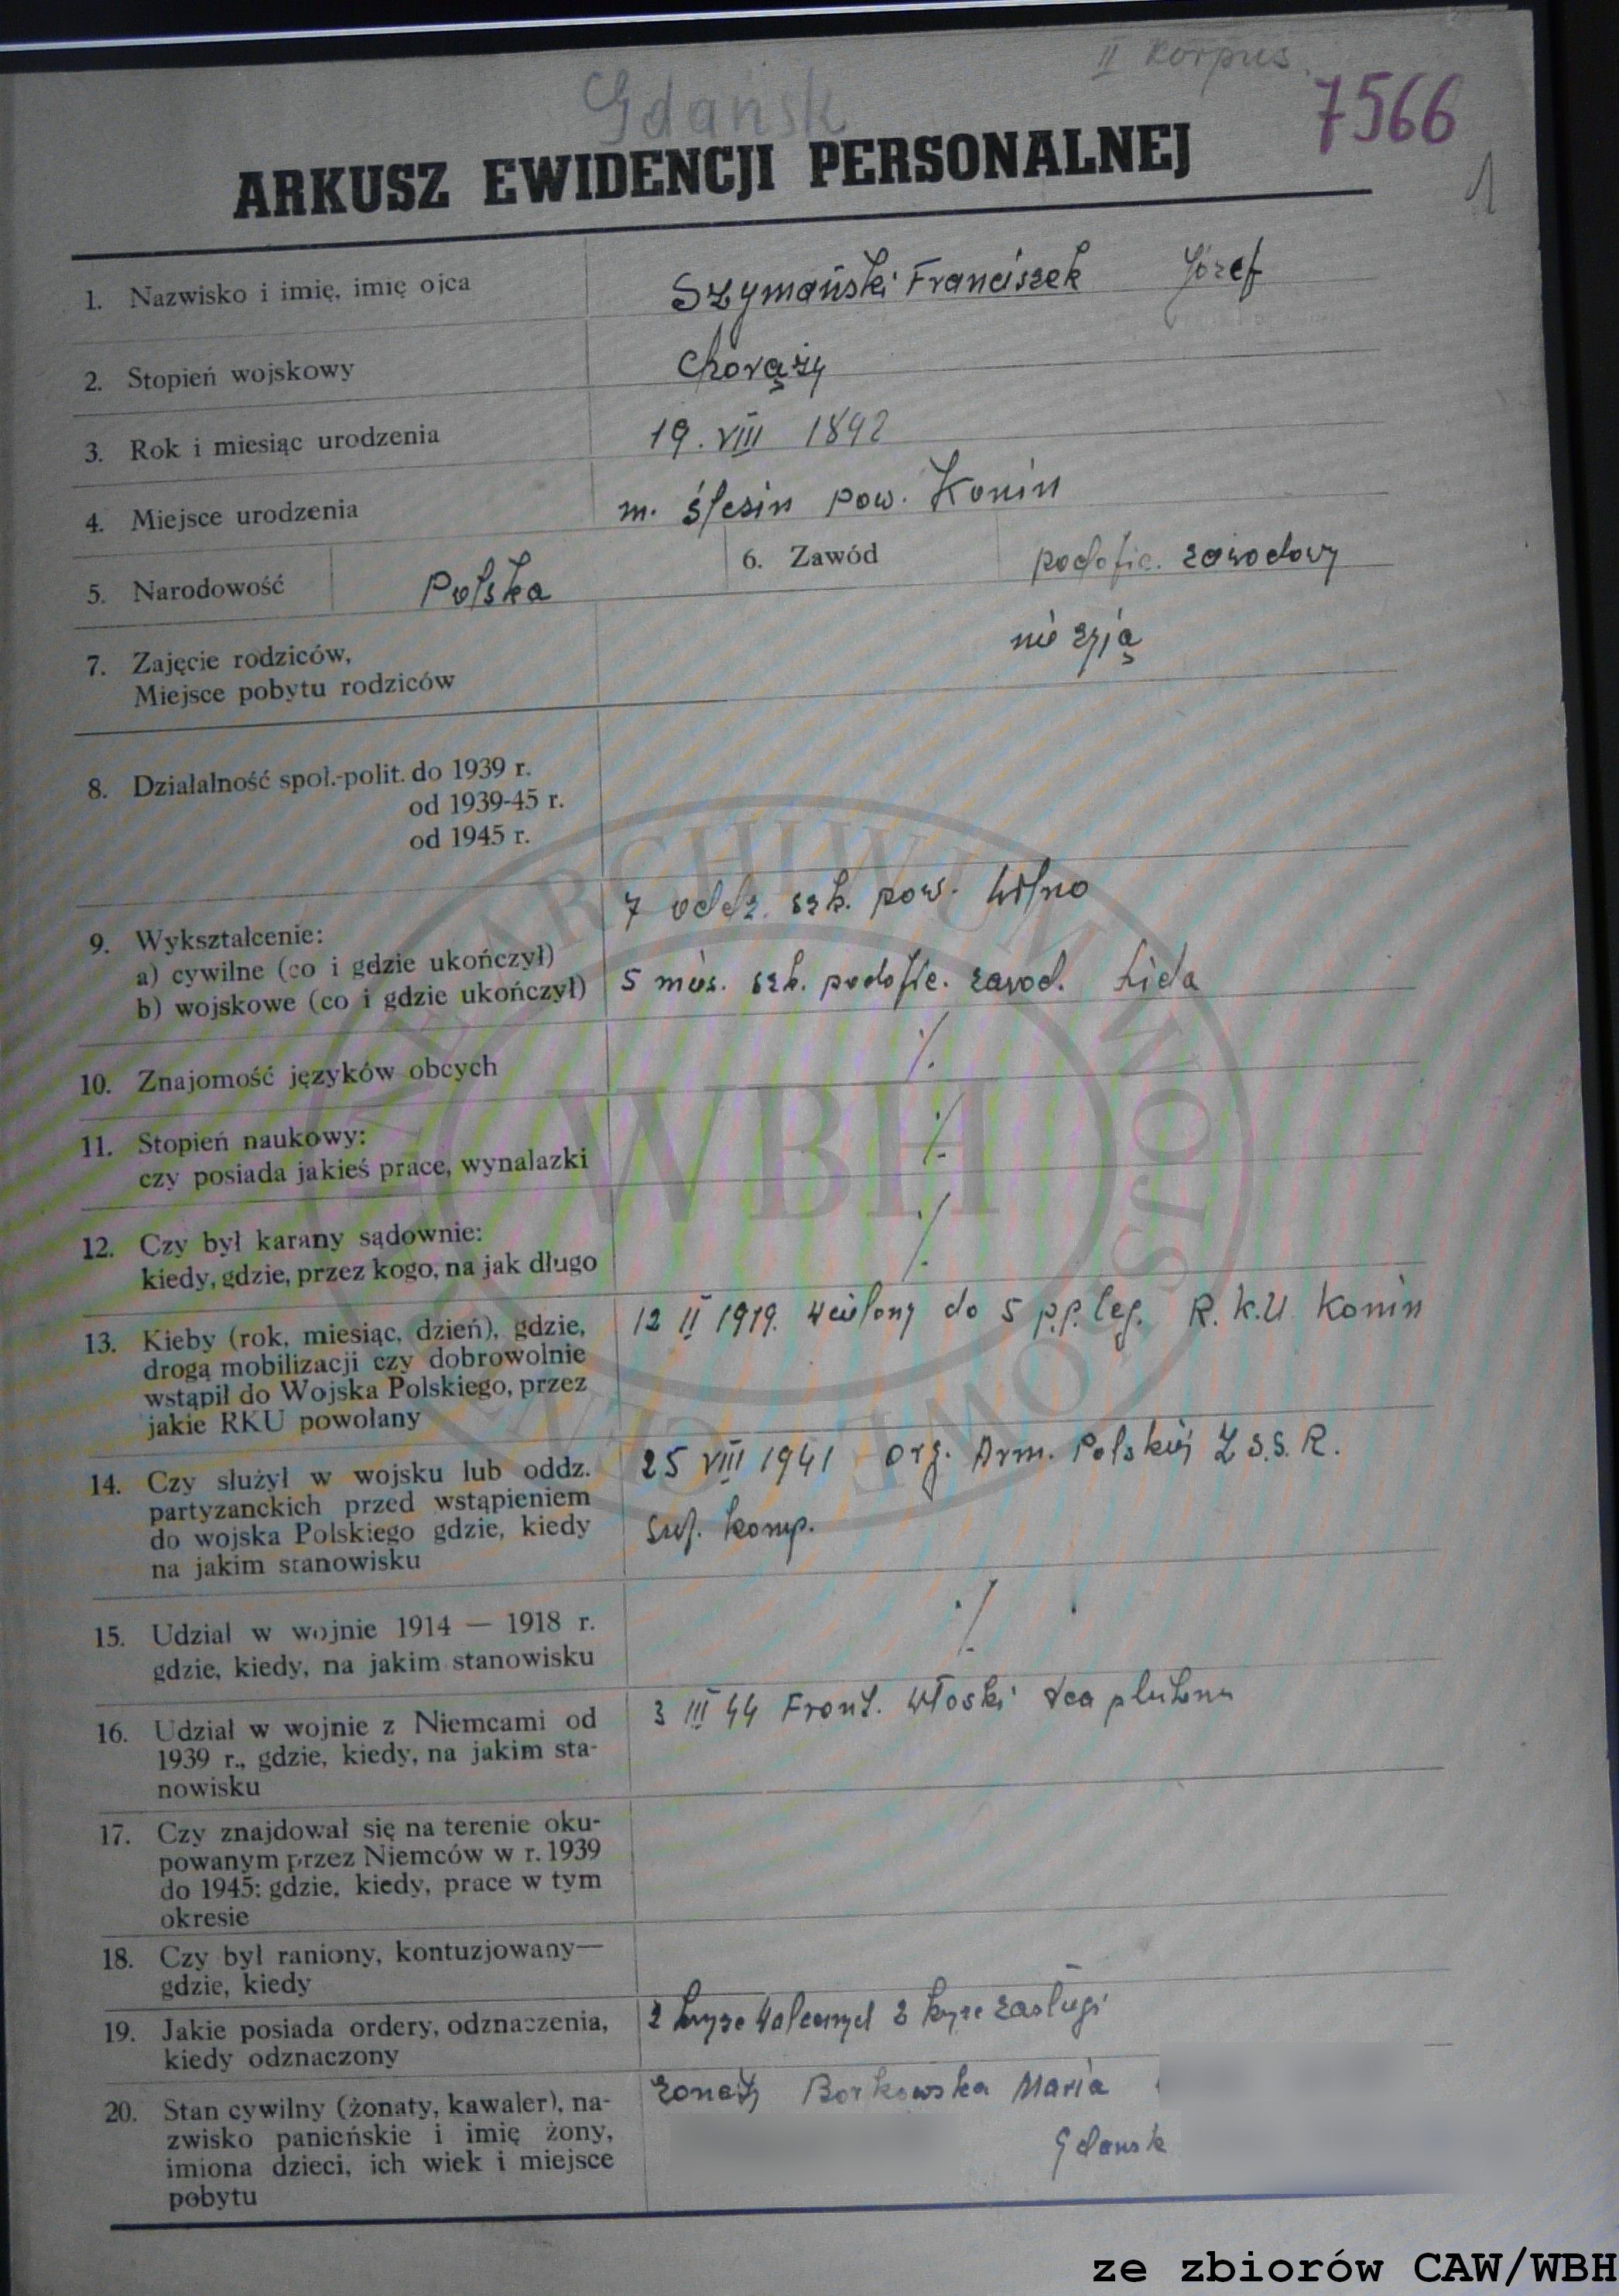 II Korpus.
Gdańsk
7566
ARKUSZ EWIDENCJI PERSONALNEJ
1
1. Nazwisko i imię, imię ojca Szymański Franciszek Józef
2. Stopień wojskowy Chorąży
3. Rok i miesiąc urodzenia 19. VIII 1892
4. Miejsce urodzenia m. Ślesin pow. Konin
5. Narodowość Polska 6. Zawód podofic. zawodowy
7. Zajęcie rodziców, nie żyją
Miejsce pobytu rodziców
8. Działalność społ.-polit. do 1939 r.
od 1939-45 r.
od 1945 r.
9. Wykształcenie: 7 oddz. szk. pow. Wilno
a) cywilne (co i gdzie ukończył)
b) wojskowe (co i gdzie ukończył) 5 mies. szk. podofic. zawod. Lida
10. Znajomość języków obcych ./.
11. Stopień naukowy:
czy posiada jakieś prace, wynalazki ./.
12. Czy był karany sądownie:
kiedy, gdzie, przez kogo, na jak długo ./.
13. Kieby (rok, miesiąc, dzień), gdzie, 12 II 1919. wcielony do 5 p.p. leg. R.K.U. Konin
drogą mobilizacji czy dobrowolnie
wstąpił do Wojska Polskiego, przez
jakie RKU powołany
14. Czy służył w wojsku lub oddz. 25 VIII 1941 org. Arm. Polskiej Z.S.S.R.
partyzanckich przed wstąpieniem
do wojska Polskiego gdzie, kiedy szef. komp.
na jakim stanowisku
15. Udział w wojnie 1914 — 1918 r. ./.
gdzie, kiedy, na jakim stanowisku
16. Udział w wojnie z Niemcami od 3 III 44 Front. Włoski dca plutonu
1939 r., gdzie, kiedy, na jakim sta-
nowisku
17. Czy znajdował się na terenie oku-
powanym przez Niemców w r. 1939
do 1945: gdzie, kiedy, prace w tym
okresie
18. Czy był raniony, kontuzjowany—
gdzie, kiedy
19. Jakie posiada ordery, odznaczenia, 2 krzyże Walecznych 2 krzyże zasługi
kiedy odznaczony
20. Stan cywilny (żonaty, kawaler), na- żonaty Borkowska Maria
zwisko panieńskie i imię żony, Gdansk
imiona dzieci, ich wiek i miejsce
pobytu
CENTRALNE ARCHIWUM WOJSKOWE
WBH
ze zbiorów CAW/WBH